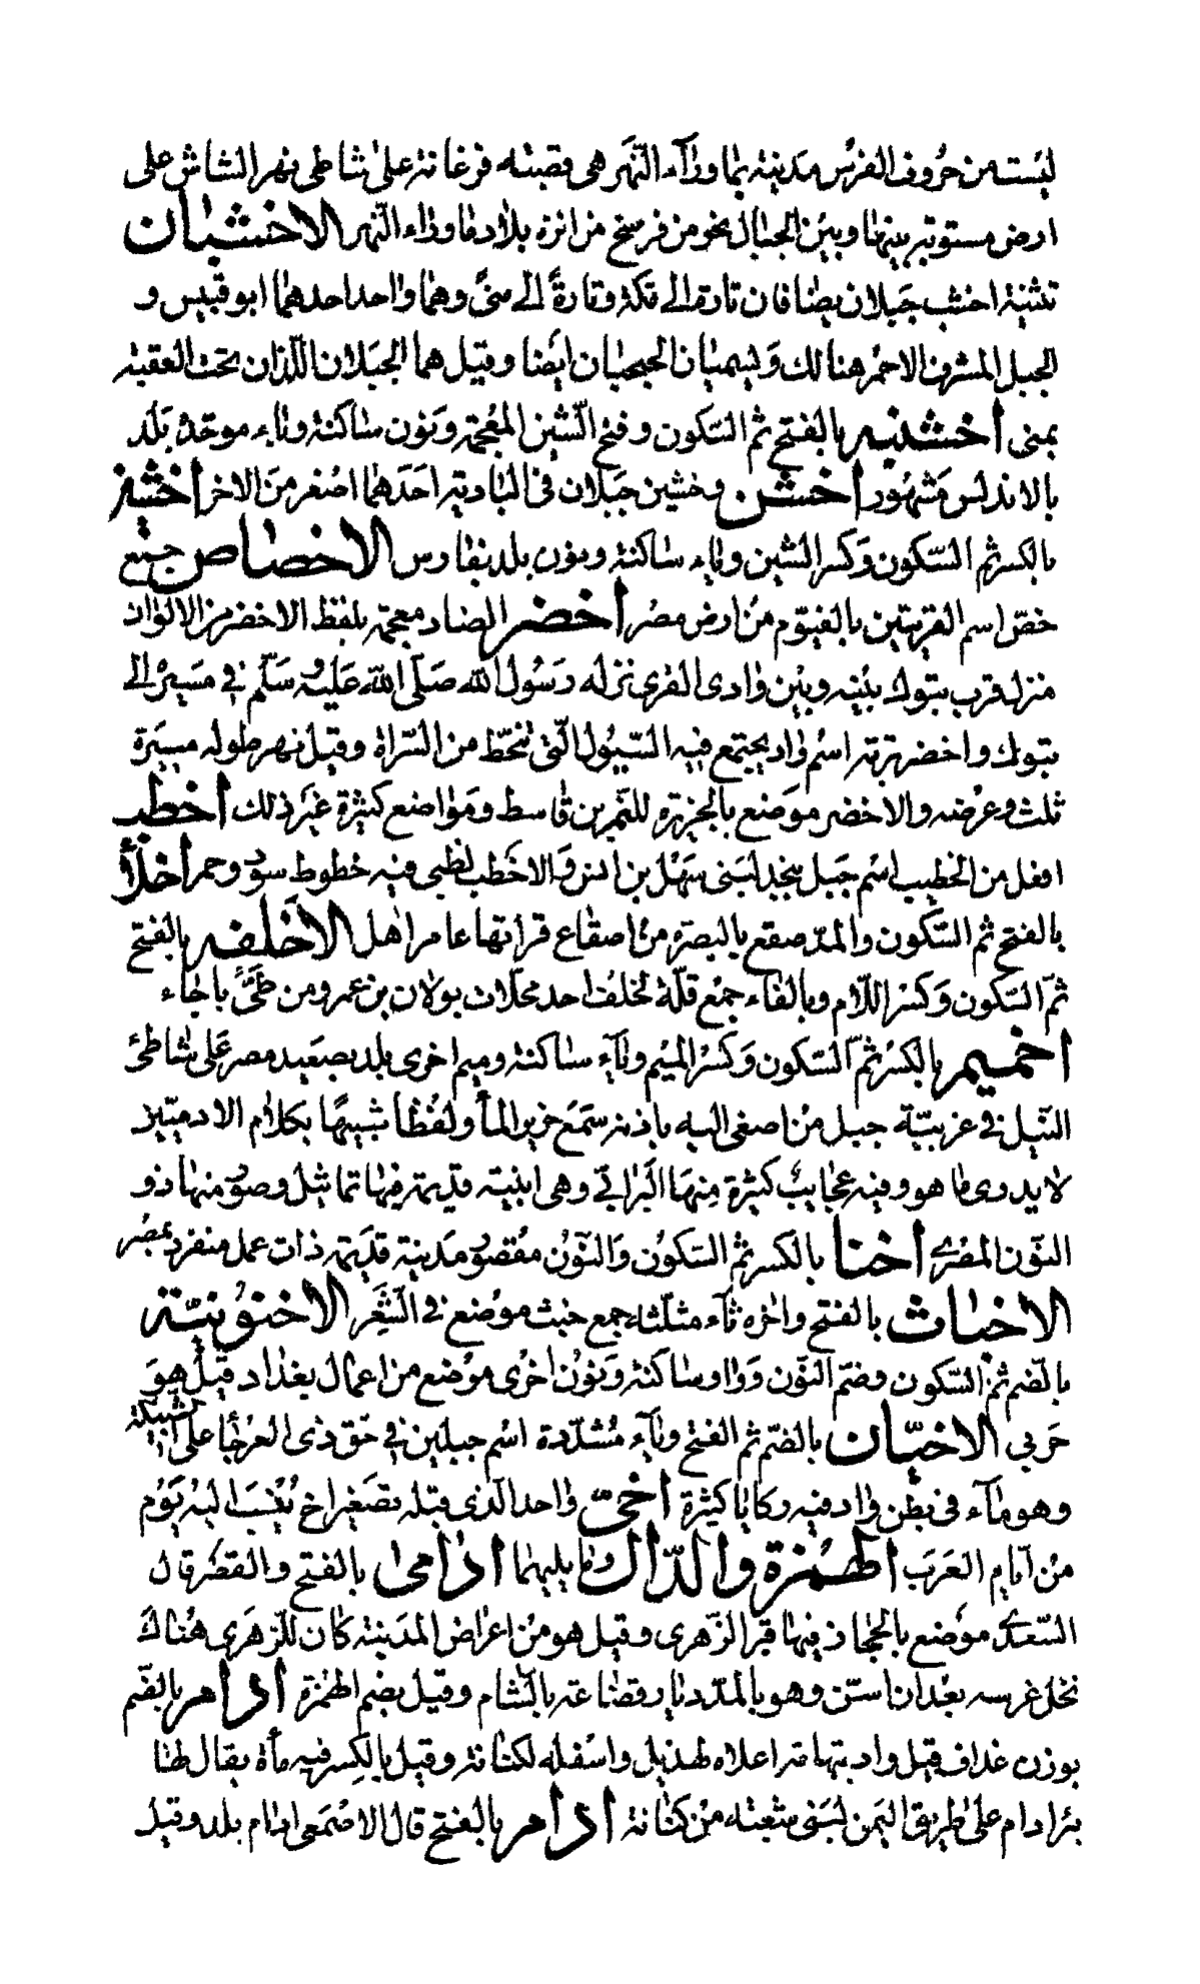 ليست من حروف الفرس مدينة بما ورآء النهر هى قصبة فرغانة على شاطى نهر الشاش على
ارض مستوية بينها وبين الجبال نحو من فرسخ من انزه بلاد ما وراء النهر الاخشبان
تثنية اخشب جبلان يضافان تارة الى مكة وتارةً الى منىً وهما واحد احدهما ابو قبيس و
الجبل المشرف الاحمر هنالك ويسميان الجبجبان ايضا وقيل هما الجبلان اللذان تحت العقبة
بمنى أخشنبه بالفتح ثم السكون وفتح الشين المعجمة ونون ساكنة وباء موحدة بلد
بالاندلس مشهور أخشن وخشين جبلان فى البادية احدهما اصغر من الاخر أخشين
بالكسر ثم السكون وكسر الشين وياء ساكنة ونون بلد بفارس الاخصاص جمع
خصّ اسم القريتين بالفيّوم من ارض مصر أخضر الضاد معجمة بلفظ الاخضر من الالوان
منزل قرب تبوك بينه وبين وادى القرى نزله رسول الله صلّى الله عليه وسلّم في مسيره الى
تبوك واخضر تربة اسم واد يجتمع فيه السّيول الّتى تنحطّ من السّراة وقيل نهر طوله مسيرة
ثلث وعرضه والاخضر موضع بالجزيرة للنّمر بن قاسط ومواضع كثيرة غير ذلك أخطب
افعل من الخطيب اسم جبل بنجد لبنى سهل بن انس والاخطب لظبى فيه خطوط سود وحمر أخلأ
بالفتح ثم السّكون والمدّ صقع بالبصرة من اصقاع قراتها عامر اهل الأخلفه بالفتح
ثمّ السّكون وكسر اللّام وبالفاء جمع قلّة لخلف احد محلّات بولان بن عمرو من طيّئ باجاء
أخميم بالكسر ثمّ السّكون وكسر الميم وياء ساكنة وميم اخرى بلد بصعيد مصر على شاطئ
النّيل في غربيّه جبل من اصغى اليه باذنه سمع خرير المأ ولغظا شبيهًا بكلام الادميّين
لا يدرى ما هو وفيه عجايب كثيرة منها البرابى وهى ابنية قديمة فيها تماثيل وصور منها ذو
النّون المصرى أخنا بالكسر ثم السّكون والنّون مقصور مدينة قديمة ذات عمل منفرد بمصر
الاخباث بالفتح واخره ثآء مثلثة جمع خبث موضع فى الشّعر الاخنونيّة
بالضم ثمّ السّكون وضمّ النّون وواو ساكنة ونون اخرى موضع من اعمال بغداد قيل هو
حربى الاخيّان بالضّم ثم الفتح ويآء مشدّدة اسم جبلين في حق ذى العرجا على الشبيكة
وهو مآء فى بطن واد فيه ركايا كثيرة أخىّ واحد الّذى قبله تصغير اخ ينسب اليه يوم
من ايام العرب الهمزة والدّال وما يليهما أدامى بالفتح والقصر قال
السّعدى موضع بالحجاز فيها قبر الزّهرى وقيل هو من اعراض المدينة كان للزّهرى هناك
نخل غرسه بعد ان اسنّ وهو بالمدّ ديار قضاعة بالشام وقيل بضم الهمزة أدام بالضّم
بوزن غداف قيل واد بتهامة اعلاه لهذيل واسفله لكنانة وقيل بالكسر فيه مأة يقال لها
بئر ادام على طريق اليمن لبنى شعبة من كنانة أدام بالفتح قال الاصمعى ادام بلد وقيل